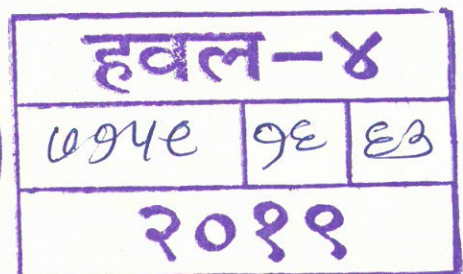 हवल-४
७१५९ १६ ६३
२०१९